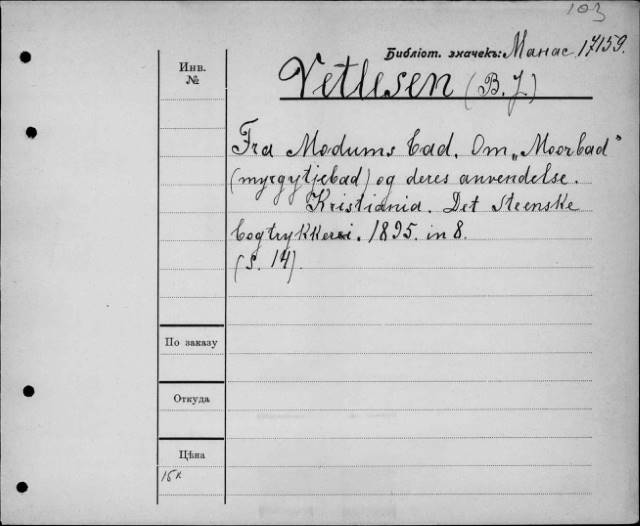 103
Библіот. значекъ: Манас 17159.
Инв.
№
Vetlesen (B. J.)
Fra Modums Bad. Om „Moorbad"
(myrgytjebad) og deres anvendelse.
Kristiania. Det Steenske
Bogtrykkeri. 1895. in 8.
(S. 14).
По заказу
Откуда
Цѣна
15к